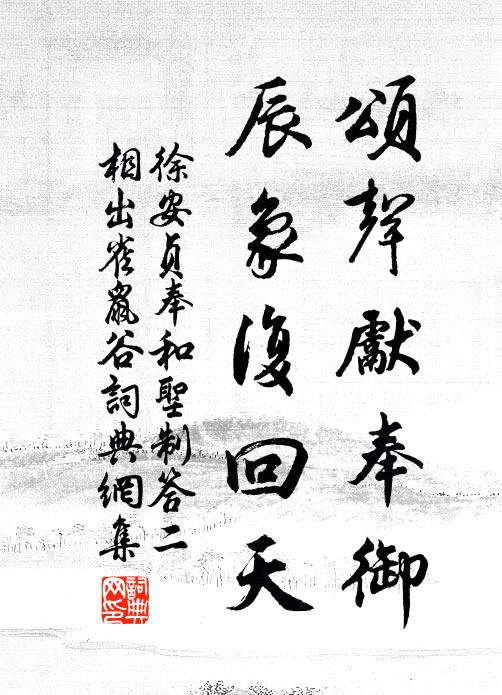 頌聲獻奉御
辰象復回天
徐安貞奉和聖制答二
相出雀鼠谷詞典網集
詞典網印